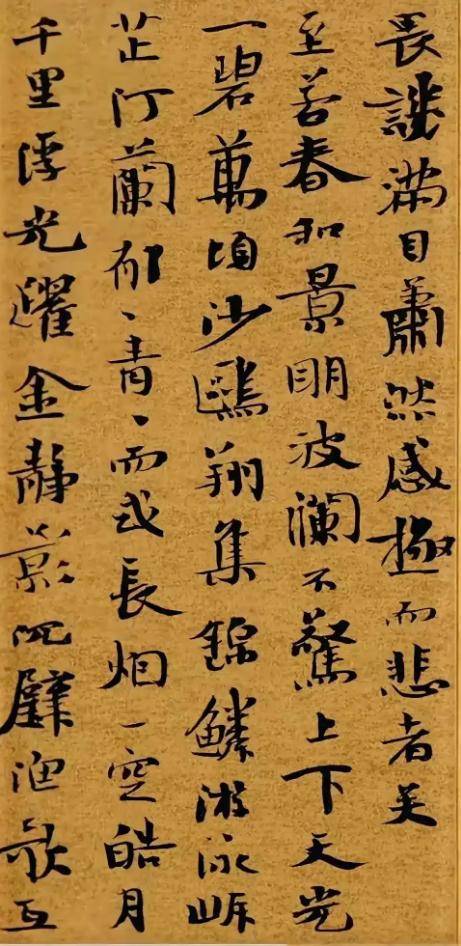 畏譏滿目蕭然感極而悲者矣
至若春和景明波瀾不驚上下天光
一碧萬頃沙鷗翔集錦鱗游泳岸
芷汀蘭郁々青々而或長烟一空皓月
千里浮光躍金静影沉璧漁歌互